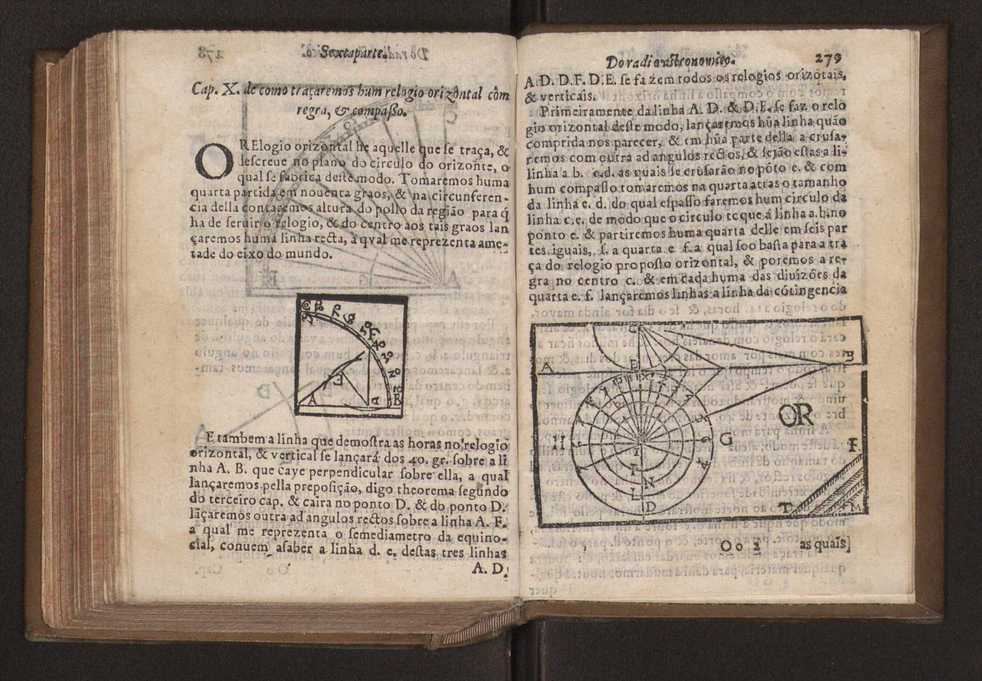 278 Sexta parte.
Cap. X. de como traçaremos hum relogio orizõntal cõm
regra, & compasso.
O RElogio orizontal he aquelle que se traça, &
descreue no plano do circulo do orizonte, o
qual se fabrica deste modo. Tomaremos huma
quarta partida em nouenta graos, & na circunferen-
cia della contaremos altura do pollo da região para q̃
ha de seruir o relogio, & do centro aos tais graos lan
çaremos huma linha recta, a qval me reprezenta ame-
tade do eixo do mundo.
E tambem a linha que demostra as horas no relogio
orizontal, & vertical se lançará dos 40. gr. sobre a li
nha A. B. que caye perpendicular sobre ella, a qual
lançaremos pella preposição, digo theorema segundo
do terceiro cap. & caira no ponto D. & do ponto D.
lãçaremos outra ad angulos rectos sobre a linha A. F.
a qual me reprezenta o semediametro da equino-
cial, conuem asaber a linha d. e. destas tres linhas
A. D,
Do radio astronomico. 279
A. D. D. F. D. E. se fazem todos os relogios orizõtais,
& verticais.
Primeiramente da linha A. D. & D. E. se faz o relo
gio orizontal deste modo, lançaremos hũa linha quão
comprida nos parecer, & em hũa parte della a crusa-
remos com outra ad angulos rectos, & sejão estas a li-
linha a b. c. d. as quais se crusarão no põto e. & com
hum compasso tomaremos na quarta atras o tamanho
da linha e. d. do qual espasso faremos hum circulo da
linha c. e. de modo que o circulo teque á linha a. b. no
ponto e. & partiremos huma quarta delle em seis par
tes iguais, s. a quarta e f. a qual soo basta para a tra
ça do relogio proposto orizontal, & poremos a re-
gra no centro c. & em cada huma das diuizões da
quarta e. f. lançaremos linhas a linha da cõtingencia
A
C
E
F
H
G
OR
I
N
L
D
T
M
Oo 2 as quais]